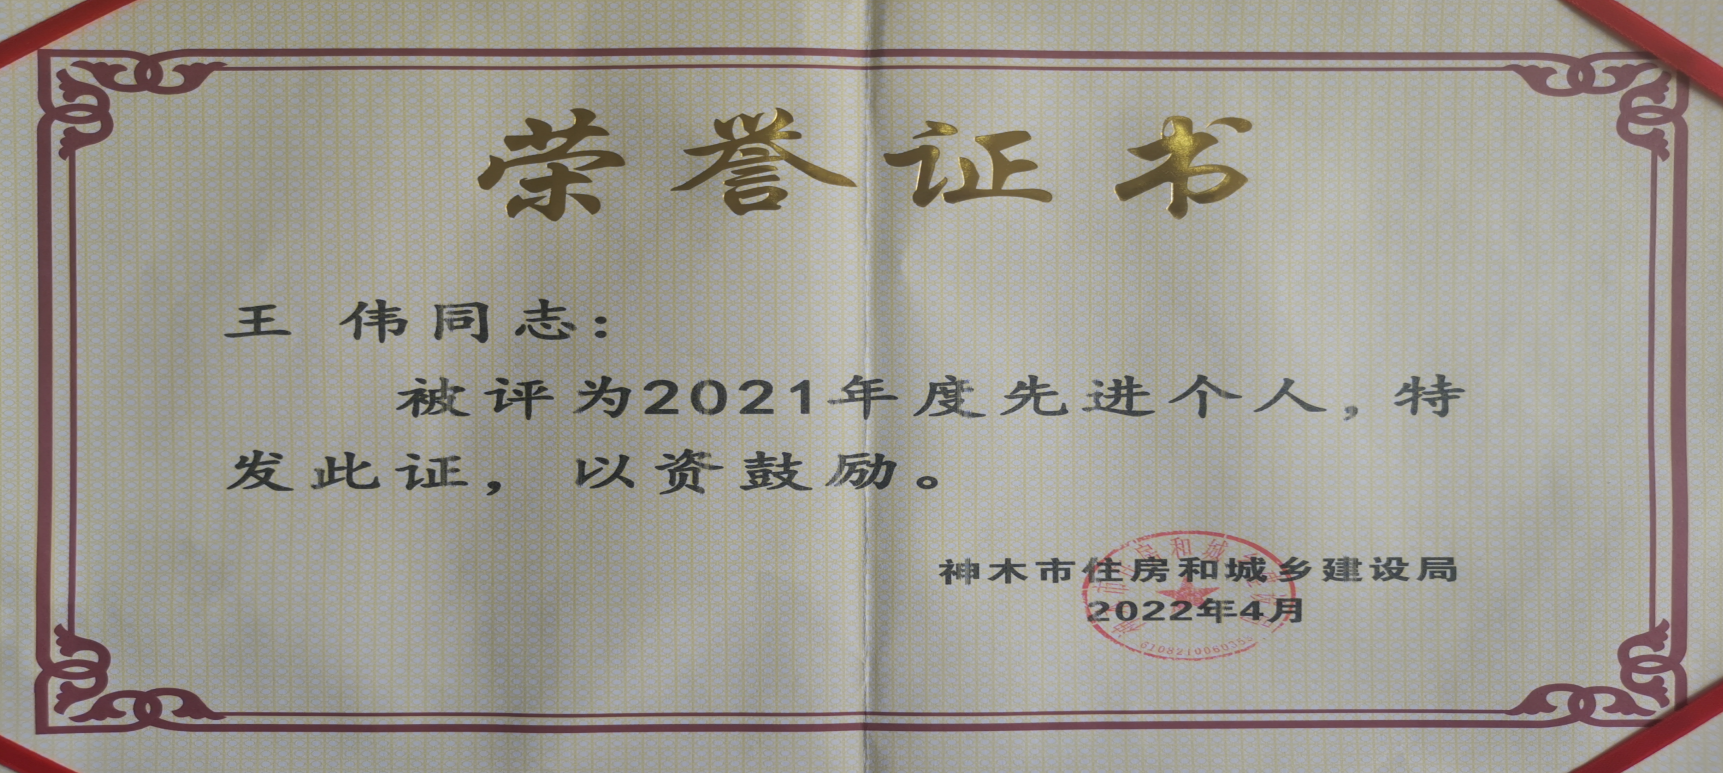 荣誉证书
王 伟同志：
被评为2021年度先进个人，特
发此证，以资鼓励。
神木市住房和城乡建设局
2022年4月